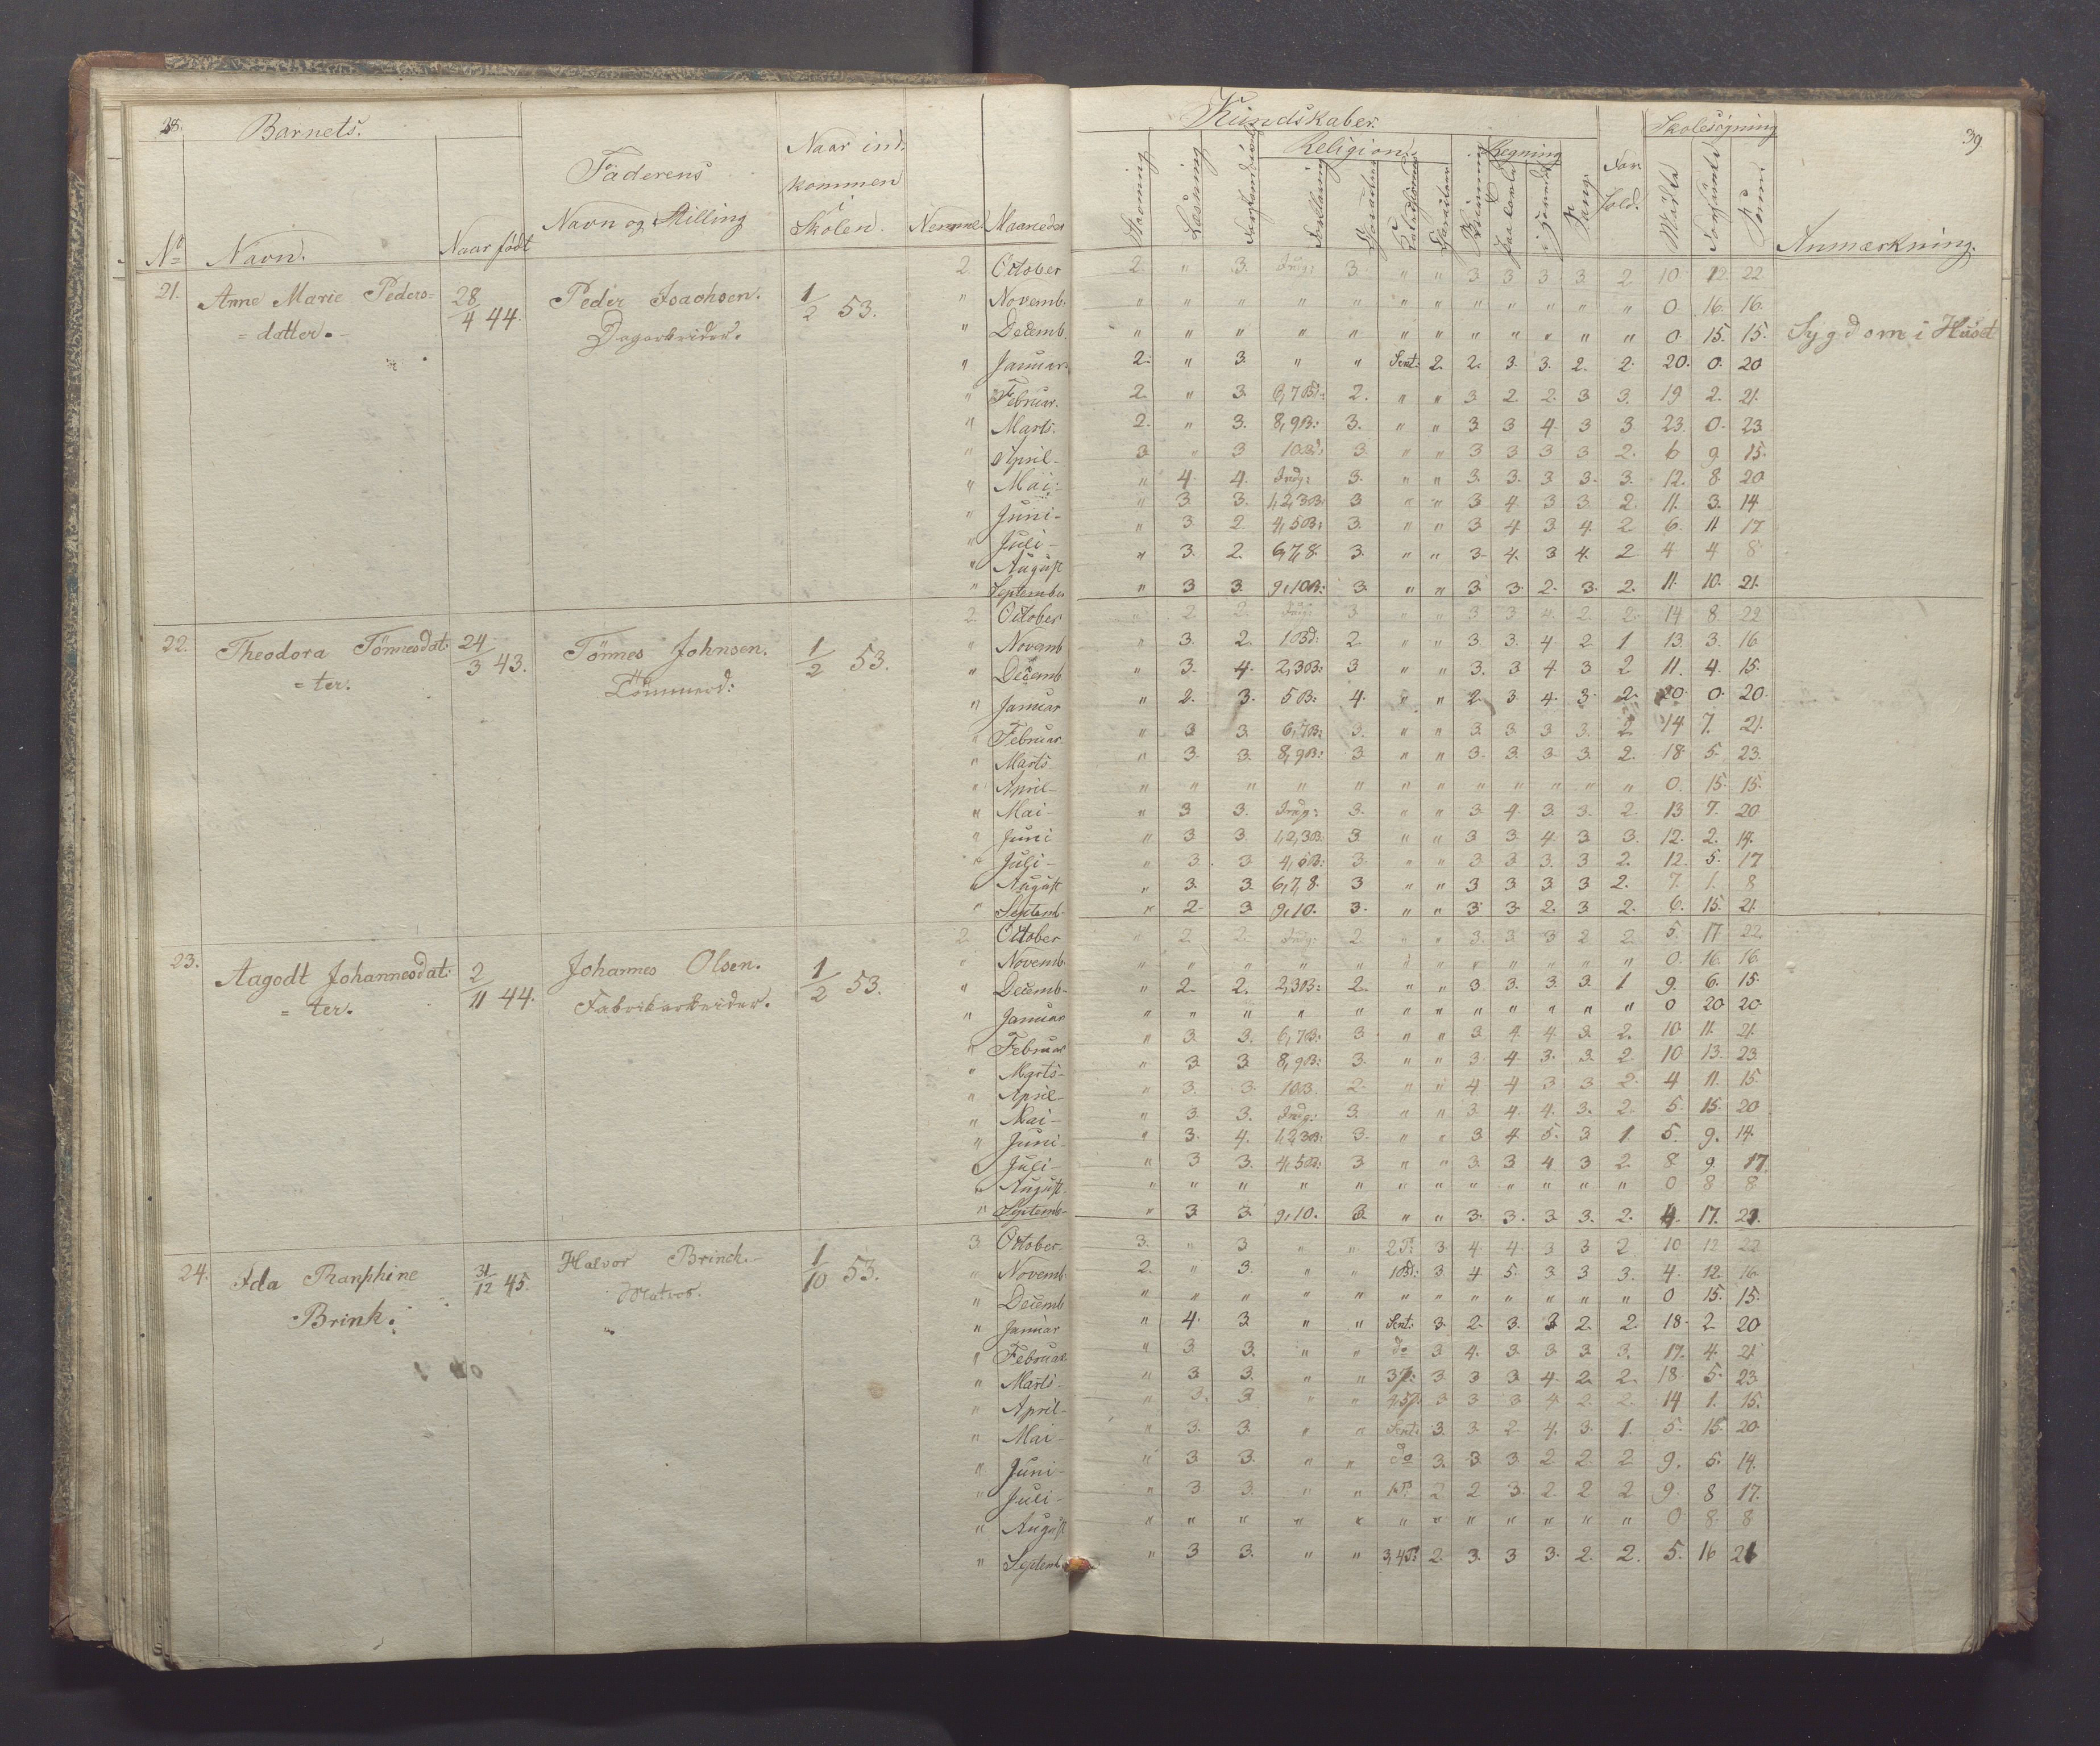 28.
Barnets.
Faderens
Naar ind-
kommen
i
Skolen.
Navn og Stilling
No
Navn.
Naar født
Nemme
Maaneder
Kundskaber.
Religion.
Regning
Skolesøgning
39
Læsning
Sang.
For-
hold.
Mødte
Forsømte
Sum
Anmærkning.
21. Anne Marie Peders= 28/4 44. Peder Isachsen. 1/2 53.
= datter.
2. October 2. " 3. Indg: 3. " " 3 3 3 3. 2. 10. 12. 22
" Novemb. " " " " " " " " " " " " 0. 16. 16.
" Decemb. " " " " " " " " " " " " 0. 15. 15. Sygdom i Huset
" Januar. 2. " 3. " " Sent: 2. 2. 3. 3. 2. 2. 20. 0. 20
" Februar. 2. " 3. 6,7Bd: 2. " " 3 2 2. 3 3. 19 2. 21.
" Marts. 2. " 3. 8,9B: 3. " " 3 3 4. 3 3 23. 0. 23
" April- 3 " 3 10B: 3. " " 3 3 3 3 2. 6 9 15.
" Mai: " 4. 4. Indg: 3. " " 3. 3. 3 3. 3. 12. 8 20
" Juni- " 3. 3. 1,2,3B: 3 " " 3 4 3 3 2. 11. 3. 14
" Juli- " 3 2. 4,5B: 3. " " 3 4 3 4. 2 6. 11 17
" August " 3. 2. 6,7,8. 3. " " 3. 4. 3 4. 2 4 4 8
" September " 3 3. 9,10B: 3. " " 3. 3. 2. 3. 2. 11. 10. 21.
22. Theodora Tönnesdat: 24/3 43. Tönnes Johnsen. 1/2 53.
= ter.
2. October " 2 2. Indg: 3 " " 3 3 4. 2. 2. 14 8. 22
" Novemb " 3. 2. 1Bd: 2. " " 3. 3. 4 2 1 13. 3. 16
" Decemb " 3. 4. 2,3B: 3 " " 3. 3 4. 3 2 11. 4. 15.
" Januar " 2. 3. 5B: 4. " " 2. 3 4. 3. 2. 20. 0. 20.
" Februar " 3 3. 6,7B: 3. " " 3. 3 3 3. 2 14 7. 21.
" Marts " 3. 3. 8,9B: 3 " " 3. 3. 3. 3. 2. 18 5. 23.
" April- " " " " " " " " " " " " 0. 15. 15.
" Mai- " 3 3. Indg: 3. " " 3 4. 3. 3. 2. 13 7. 20
" Juni " 3 3 1,2,3B: 3 " " 3 3 4. 3 3. 12. 2. 14.
" Juli- " 3. 3 4,5B: 3. " " 3 3 3. 3 2. 12. 5. 17
" August " 3. 3. 6,7,8. 3 " " 3 3 3 3 2. 7. 1. 8
" Septemb- " 2. 3 9,10. 3. " " 3 3. 2. 3 2. 6. 15. 21.
23. Aagodt Johannesdat: 2/11 44. Johannes Olsen. 1/2 53.
= ter. Fabrikarbeider.
2. October " 2 2. Indg: 2 " " 3. 3. 3 2 2 5. 17 22
" Novemb. " " " " " " " " " " " " 0. 16. 16.
" Decemb- " 2. 2. 2,3B: 2. " " 3 3. 3. 3. 1 9. 6. 15.
" Januar " " " " " " " " " " " " 0 20 20
" Februar " 3 3. 6,7B: 3. " " 3 4. 4. 3. 2. 10. 11. 21.
" Marts- " 3 3 8,9B: 3. " " 3. 4 3. 3. 2 10 13. 23
" April- " 3. 3. 10B 2. " " 4 4 3 3 2. 4 11. 15.
" Mai- " 3. 3. Indg: 3. " " 3 4. 4. 3. 2. 5. 15. 20
" Juni- " 3. 4. 1,2,3B: 3. " " 3 4 5. 3 1. 5. 9. 14.
" Juli- " 3 3. 4,5B: 3 " " 3. 3 4 3 2. 8 9 17.
" August. " " " " " " " " " " " " 0 8 8
" Septemb- " 3 3. 9,10. 3. " " 3. 3. 3 3. 2. 4. 17. 21.
24. Ida Brink. 31/12 45. Halvor Brinck. 1/10 53.
Matros.
3. October. 3. " 3 " " 2P: 3 4. 4. 3 3 2. 10 12 22
" Novemb. 2. " 3. " " 10B: 3 4 5. 3 3 3. 4. 12. 16.
" Decemb " " " " " " " " " " " " 0 15. 15.
" Januar " 4. 3 " " Sent: 3. 2. 3. 3 2. 2. 18. 2 20
" Februar. " 3 3. " " do 3 4. 3. 3. 3. 3. 17. 4. 21
" Marts- " 3 3. " " 3P: 3. 3 3 4. 2. 2. 18. 5. 23
" April- " 3. 3 " " 4,5P. 3 3 3 4 2. 2. 14 1. 15.
" Mai- " 3. 3. " " Sent: 3. 3. 2. 4. 3. 1. 5. 15. 20
" Juni- " 3 3. " " do 3. 3. 3. 2. 2. 2 9. 5. 14.
" Juli- " 3 3. " " 1P: 2 2 3. 2. 2 2 9. 8 17.
" August " " " " " " " " " " " " 0 8. 8
" Septemb " 3 3. " " 3,4P: 2. 3. 3 3. 2. 2. 5. 16 21